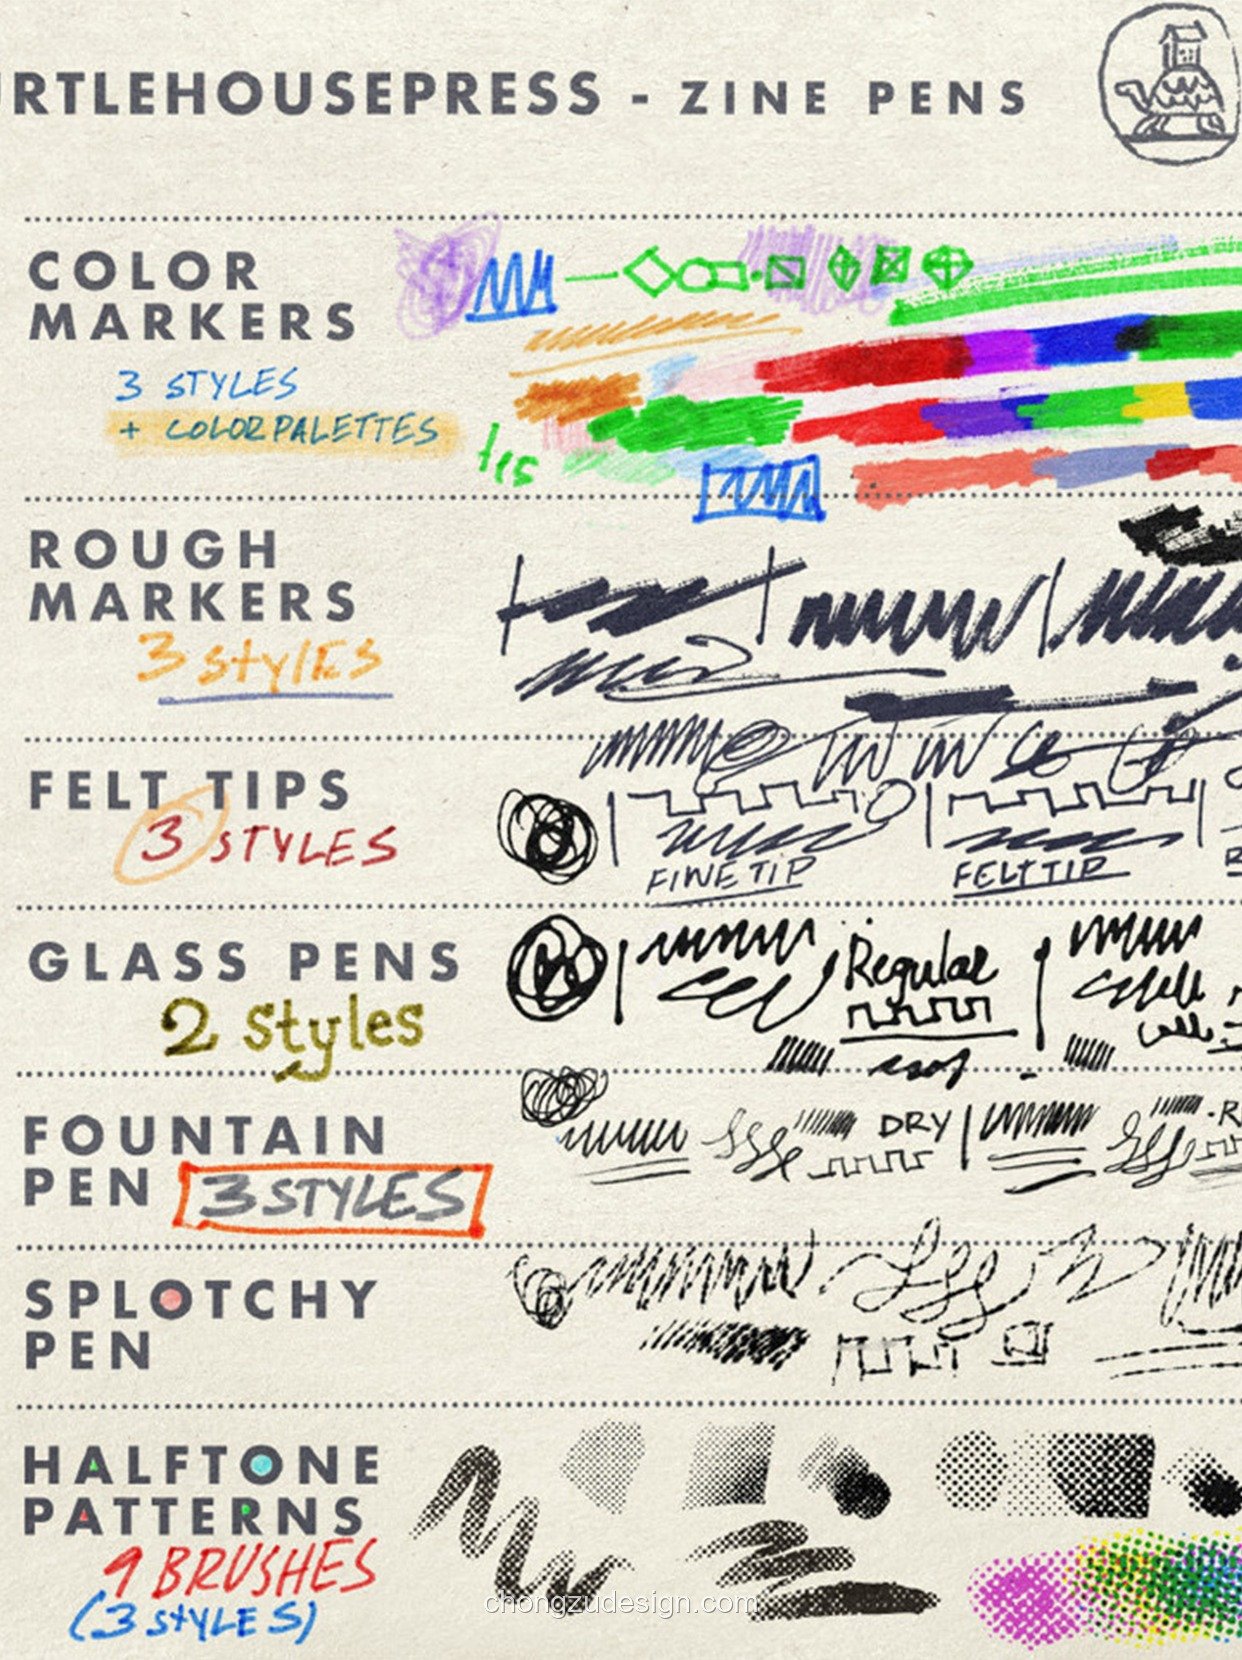 RTLEHOUSEPRESS - ZINE PENS
COLOR
MARKERS
3 STYLES
+ COLORPALETTES
ROUGH
MARKERS
3 styles
FELT TIPS
3 STYLES
FINE TIP
FELT TIP
GLASS PENS
2 styles
Regular
FOUNTAIN
PEN 3 STYLES
DRY
SPLOTCHY
PEN
HALFTONE
PATTERNS
9 BRUSHES
(3 STYLES)
chongzudesign.com